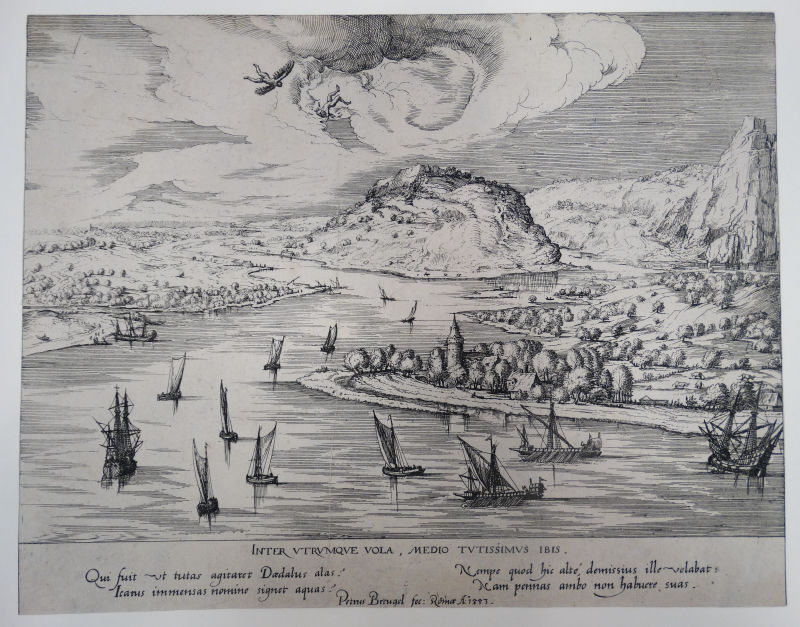 INTER VTRVMQVE VOLA, MEDIO TVTISSIMVS IBIS.
Qui fuit vt tutas agitaret Dædalus alas?
Icarus immensas nomine signet aquas?
Nempe quod hic alte, demissius ille volabat:
Nam pennas ambo non habuere suas.
Petrus Breugel fec: Romæ Aº 1553